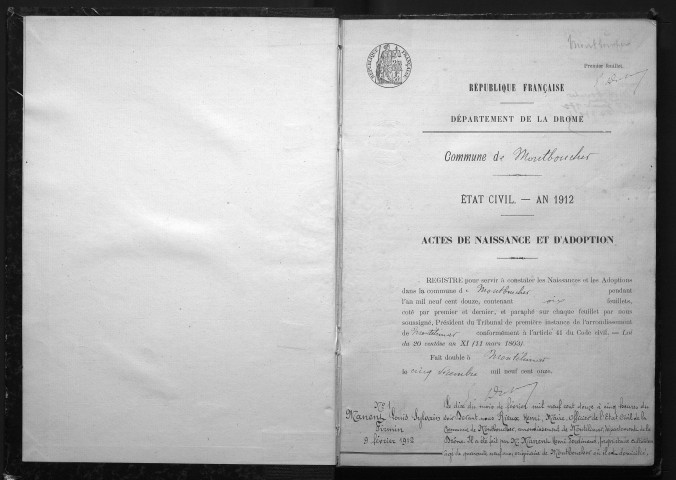 Montboucher
Premier feuillet.
RÉPUBLIQUE FRANÇAISE
RÉPUBLIQUE FRANÇAISE
DÉPARTEMENT DE LA DROME
Commune de Montboucher
ÉTAT CIVIL. — AN 1912
ACTES DE NAISSANCE ET D'ADOPTION
REGISTRE pour servir à constater les Naissances et les Adoptions
dans la commune de Montboucher pendant
l'an mil neuf cent douze, contenant six feuillets,
coté par premier et dernier, et paraphé sur chaque feuillet par nous
soussigné, Président du Tribunal de première instance de l'arrondissement
de Montélimar conformément à l'article 41 du Code civil. — Loi
du 20 ventôse an XI (11 mars 1803)
Fait double à Montélimar
le cinq décembre mil neuf cent onze.
No 1
Manent Louis Sylvain
Firmin
9 février 1912
Le dix du mois de février mil neuf cent douze à cinq heures du
soir Devant nous Henri, Maire, Officier de l'Etat civil de la
Commune de Montboucher, arrondissement de Montélimar, département de la
Drôme. Il a été fait par Mr Manent Louis Ferdinand, propriétaire cultivateur
âgé de quarante neuf ans, originaire de Montboucher où il est domicilié,